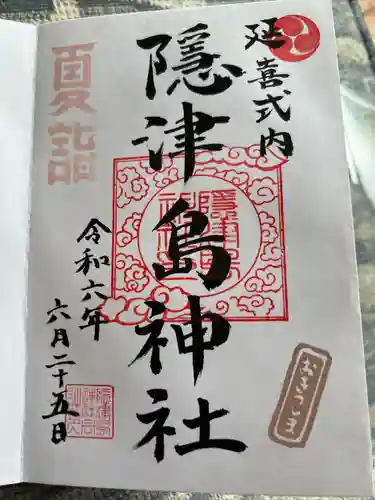 延喜式内
隠津島神社
夏詣
令和六年
六月二十五日
おきつしま